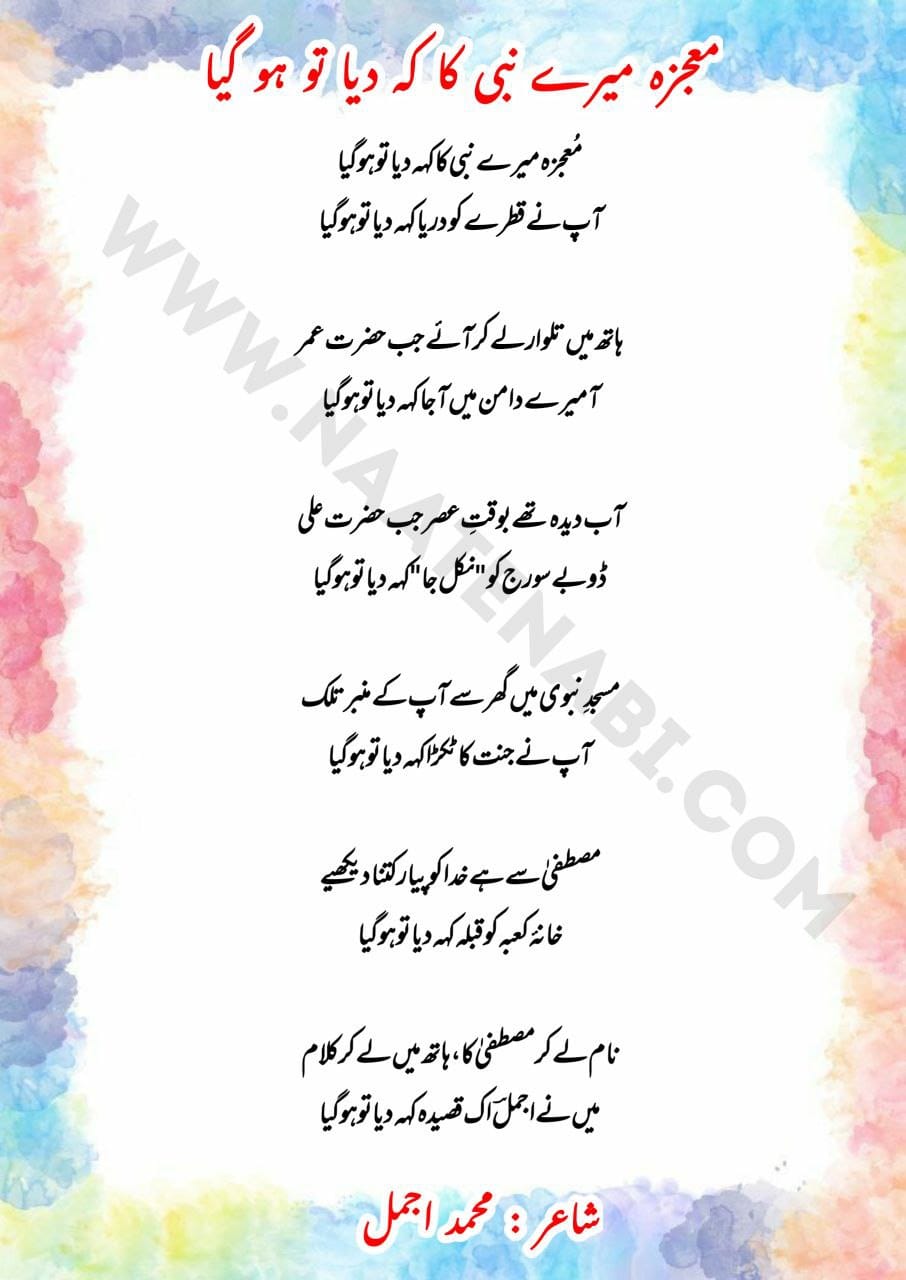 معجزہ میرے نبی کا کہ دیا تو ہو گیا
مُعجزہ میرے نبی کا کہہ دیا تو ہوگیا
آپ نے قطرے کو دریا کہہ دیا تو ہوگیا
ہاتھ میں تلوار لے کر آئے جب حضرت عمر
آ میرے دامن میں آجا کہہ دیا تو ہوگیا
آب دیدہ تھے بوقتِ عصر جب حضرت علی
ڈوبے سورج کو "نکل جا" کہہ دیا تو ہوگیا
مسجدِ نبوی میں گھر سے آپ کے منبر تلک
آپ نے جنت کا ٹکڑا کہہ دیا تو ہوگیا
مصطفیٰ سے ہے خدا کو پیار کتنا دیکھیے
خانۂ کعبہ کو قبلہ کہہ دیا تو ہوگیا
نام لے کر مصطفیٰ کا، ہاتھ میں لے کر کلام
میں نے اجملؔ اک قصیدہ کہہ دیا تو ہوگیا
شاعر : محمد اجمل
WWW.NAATENABI.COM